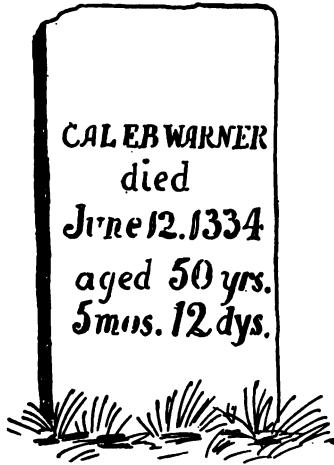 CALEB WARNER
died
June 12. 1334
aged 50 yrs.
5mos. 12 dys.